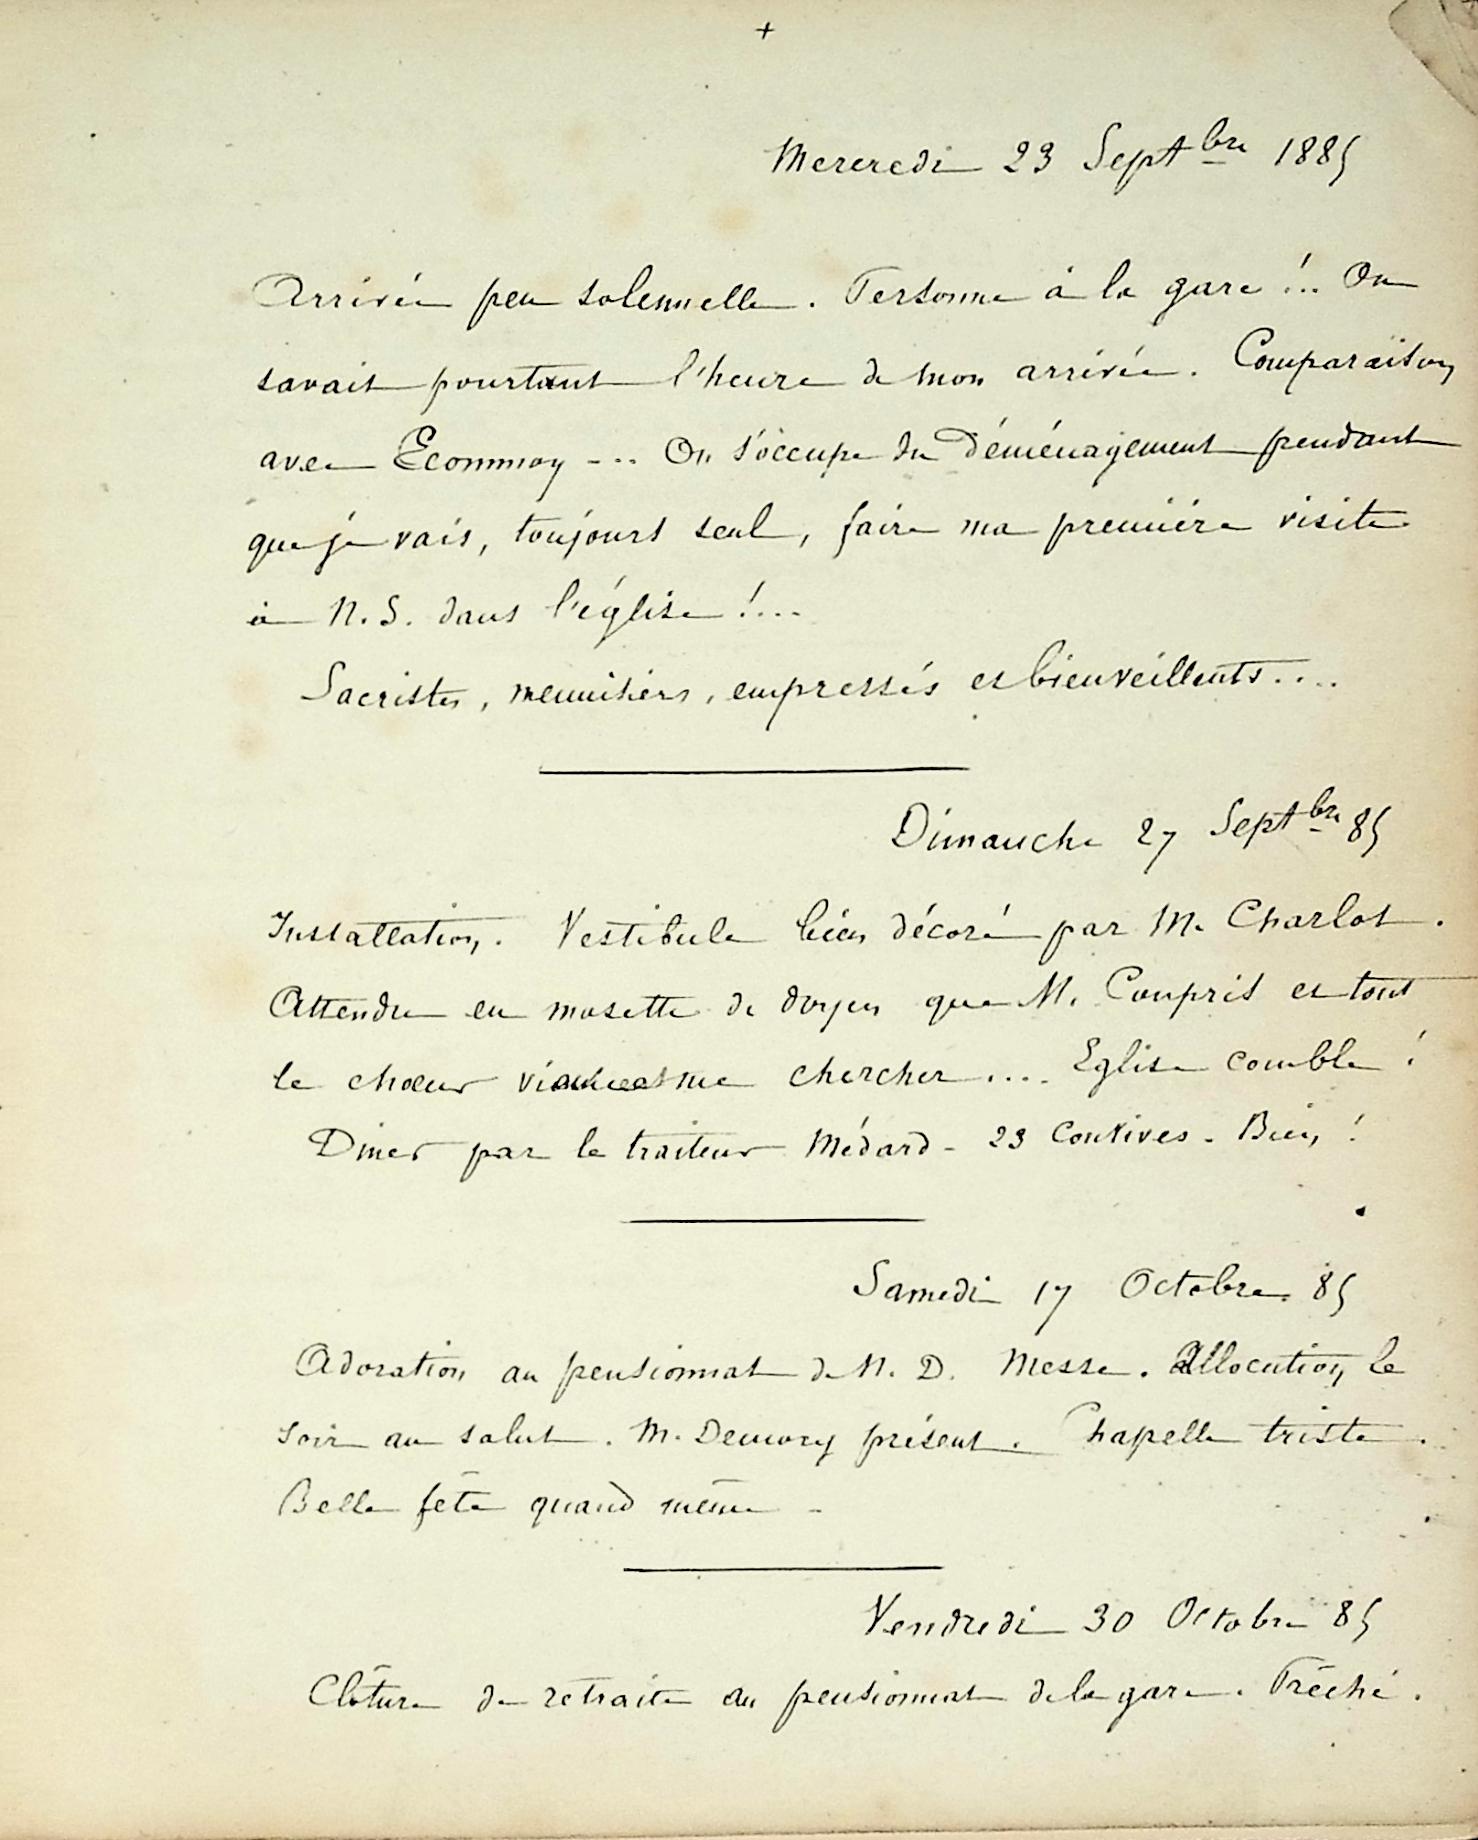 +
Mercredi 23 Septbre 1885
Arrivée peu solennelle. Personne à la gare !.. On
savait pourtant l'heure de mon arrivée. Comparaison
avec Ecommoy --.. On s'occupe du déménagement pendant
que je vais, toujours seul, faire ma première visite
à N. S. dans l'église !...
Sacristes, menuisiers, empressés et bienveillants....
Dimanche 27 Septbre 85
Installation. Vestibule bien décoré par M. Charlot.
Attendu en mosette de doyen que M. Coupris et tout
le chœur me chercher.... Eglise comble !
Diner par le traiteur Médard - 23 convives - Bien !
Samedi 17 Octobre 85
Adoration au pensionnat de N. D. Messe. Allocution le
soir au salut. M. Demory présent. Chapelle triste.
Belle fête quand même -
Vendredi 30 Octobre 85
Clôture de retraite au pensionnat de la gare. Prêché.